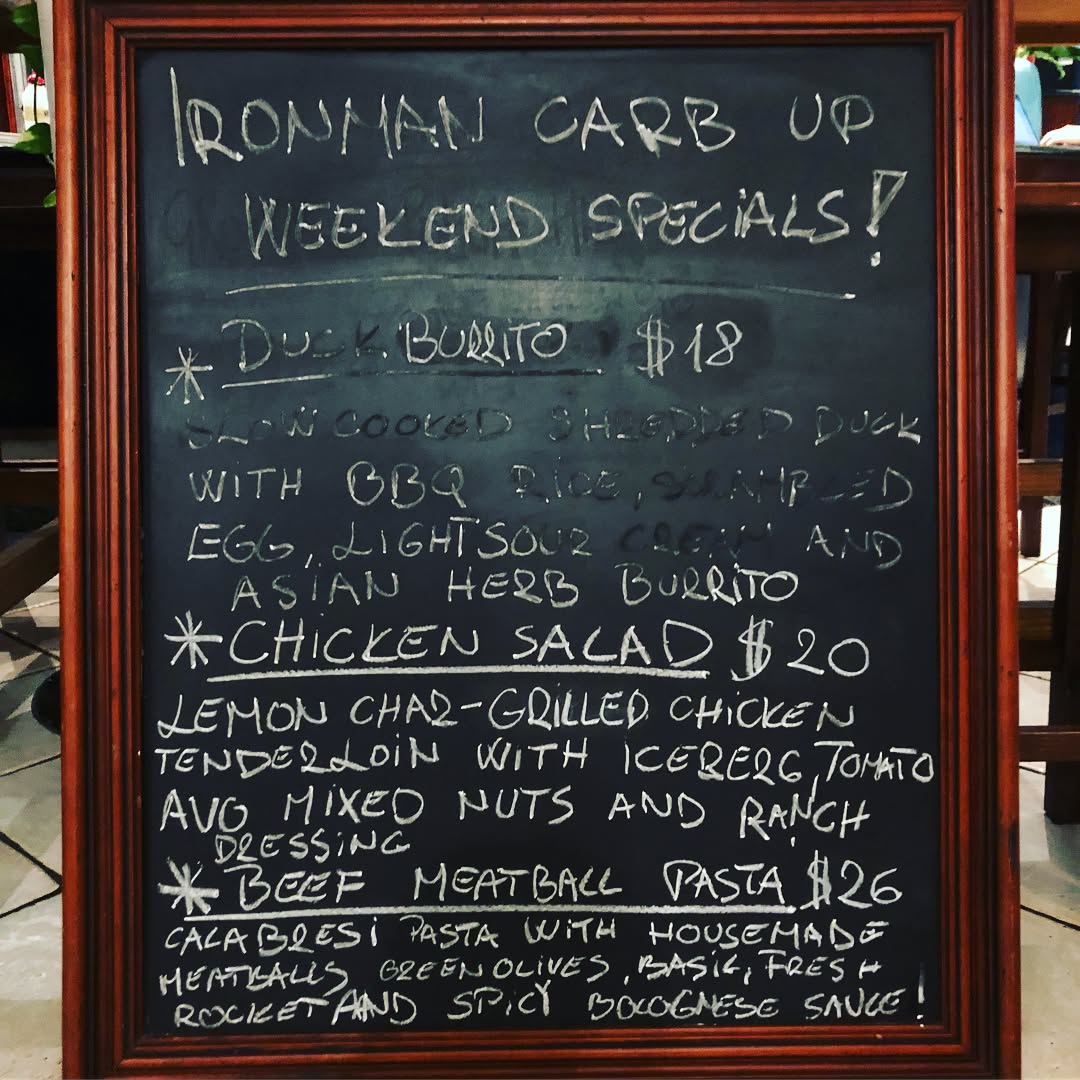 IRONMAN CARB UP
WEEKEND SPECIALS!
* DUCK BURRITO $18
SLOW COOKED SHREDDED DUCK
WITH BBQ RICE, SCRAMBLED
EGG, LIGHT SOUR CREAM AND
ASIAN HERB BURRITO
* CHICKEN SALAD $20
LEMON CHAR-GRILLED CHICKEN
TENDERLOIN WITH ICEBERG, TOMATO
AVO MIXED NUTS AND RANCH
DRESSING
* BEEF MEATBALL PASTA $26
CALABRESI PASTA WITH HOUSEMADE
MEATBALLS GREEN OLIVES, BASIL, FRESH
ROCKET AND SPICY BOLOGNESE SAUCE!